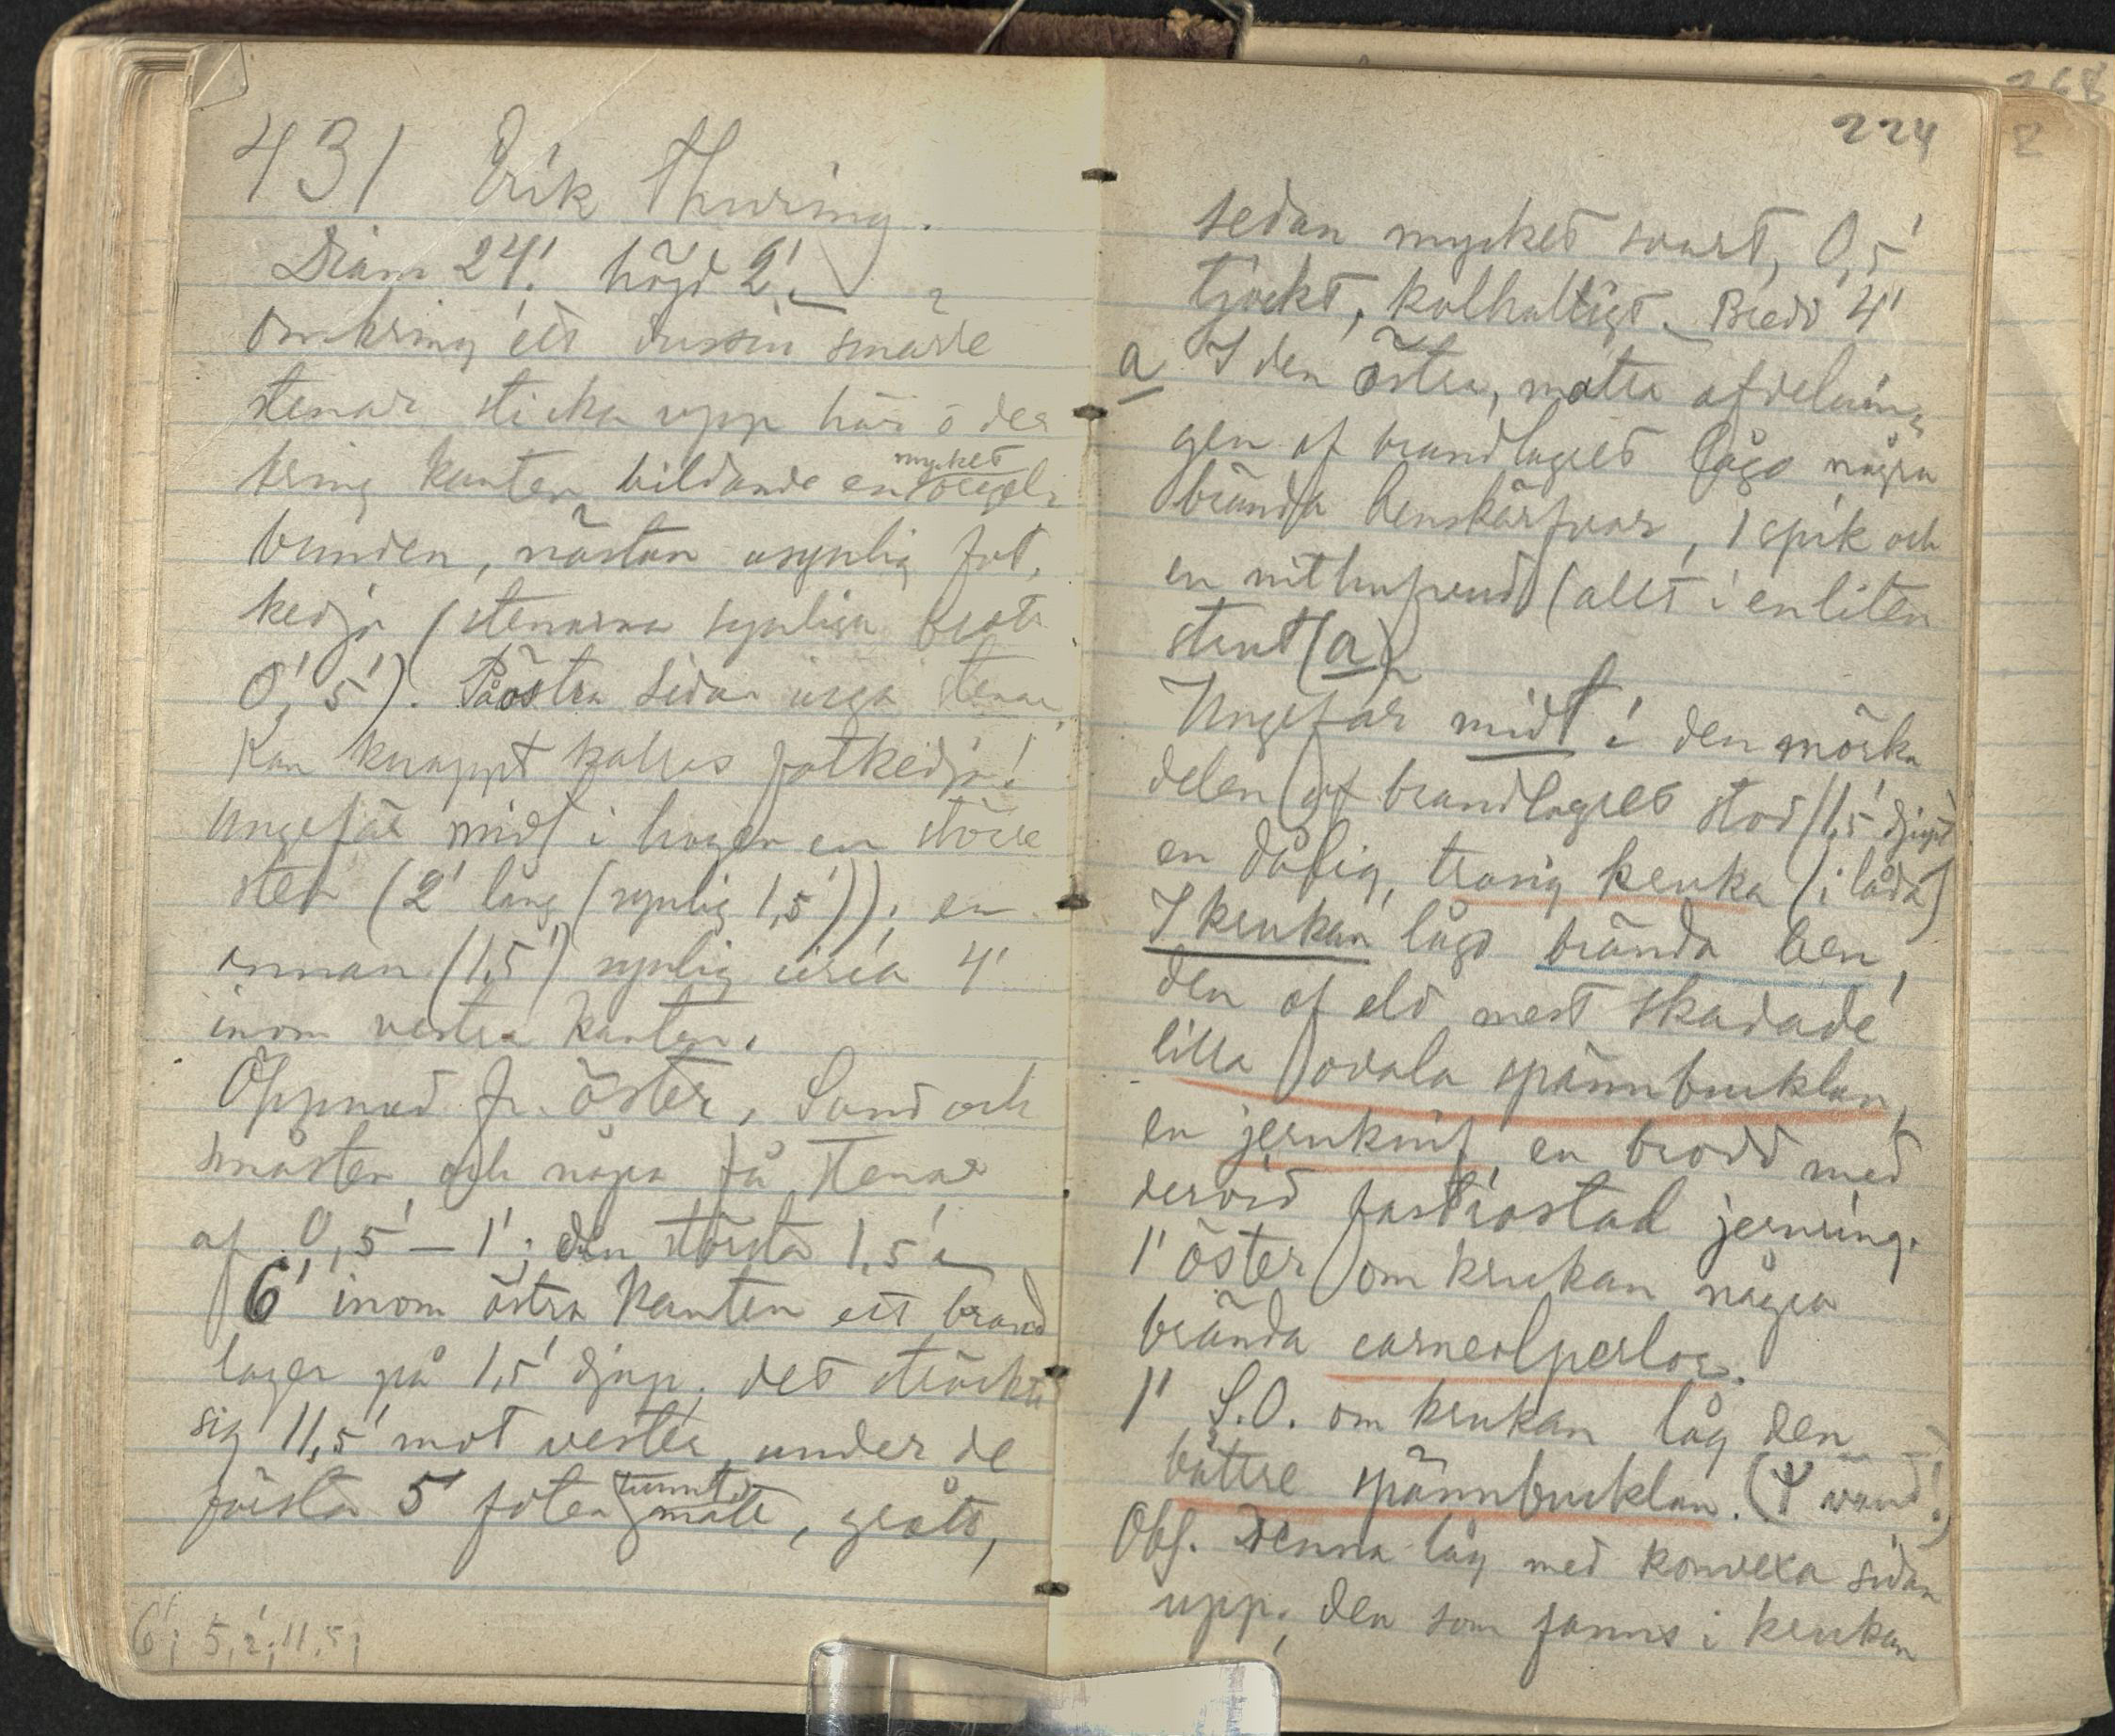 431 Erik Thuring.
Diam 24'. höjd 2'.
Omkring ett dussin smärre
stenar sticka upp här o der
kring kanten bildande en mycket oregel-
bunden, nästan osynlig fot-
kedja (stenarna synliga
0,5'). På östra sidan inga stenar
Kan knappt kallas fotkedja!
Ungefär midt i högen en större
sten (2' lång (synlig 1,5')); en
annan (1,5') synlig circa 4'
inom vestra kanten.
Öppnad fr. öster. Sand och
småsten och några få stenar
af 0,5' – 1'; den största 1,5'.
6' inom östra kanten ett brand
lager på 1,5' djup, det sträckte
sig 11,5' mot vester, under de
första 5 foten tunnt matt, grått,
6'; 5,2'; 11,5;
224
sedan mycket svart, 0,5'
tjockt, kolhaltigt. Bredd 4'
a I den östra, matta afdelnin-
gen af brandlagret lågo några
brända benskärfvor, 1 spik och
en nithufvud (allt i en liten
strut (a)
Ungefär midt i den mörka
delen af brandlagret stod (1,5' djupt
en dålig, trasig kruka (i låda)
I krukan lågo brända ben,
den af eld mest skadade
lilla ovala spännbucklan,
en jernknif, en brodd med
dervid fastrostad jernring.
1' öster om krukan några
brända carneolperlor.
1' S.O. om krukan låg den
bättre spännbucklan.
Obs. Denna låg med konvexa sidan
upp, den som fanns i krukan
268
2